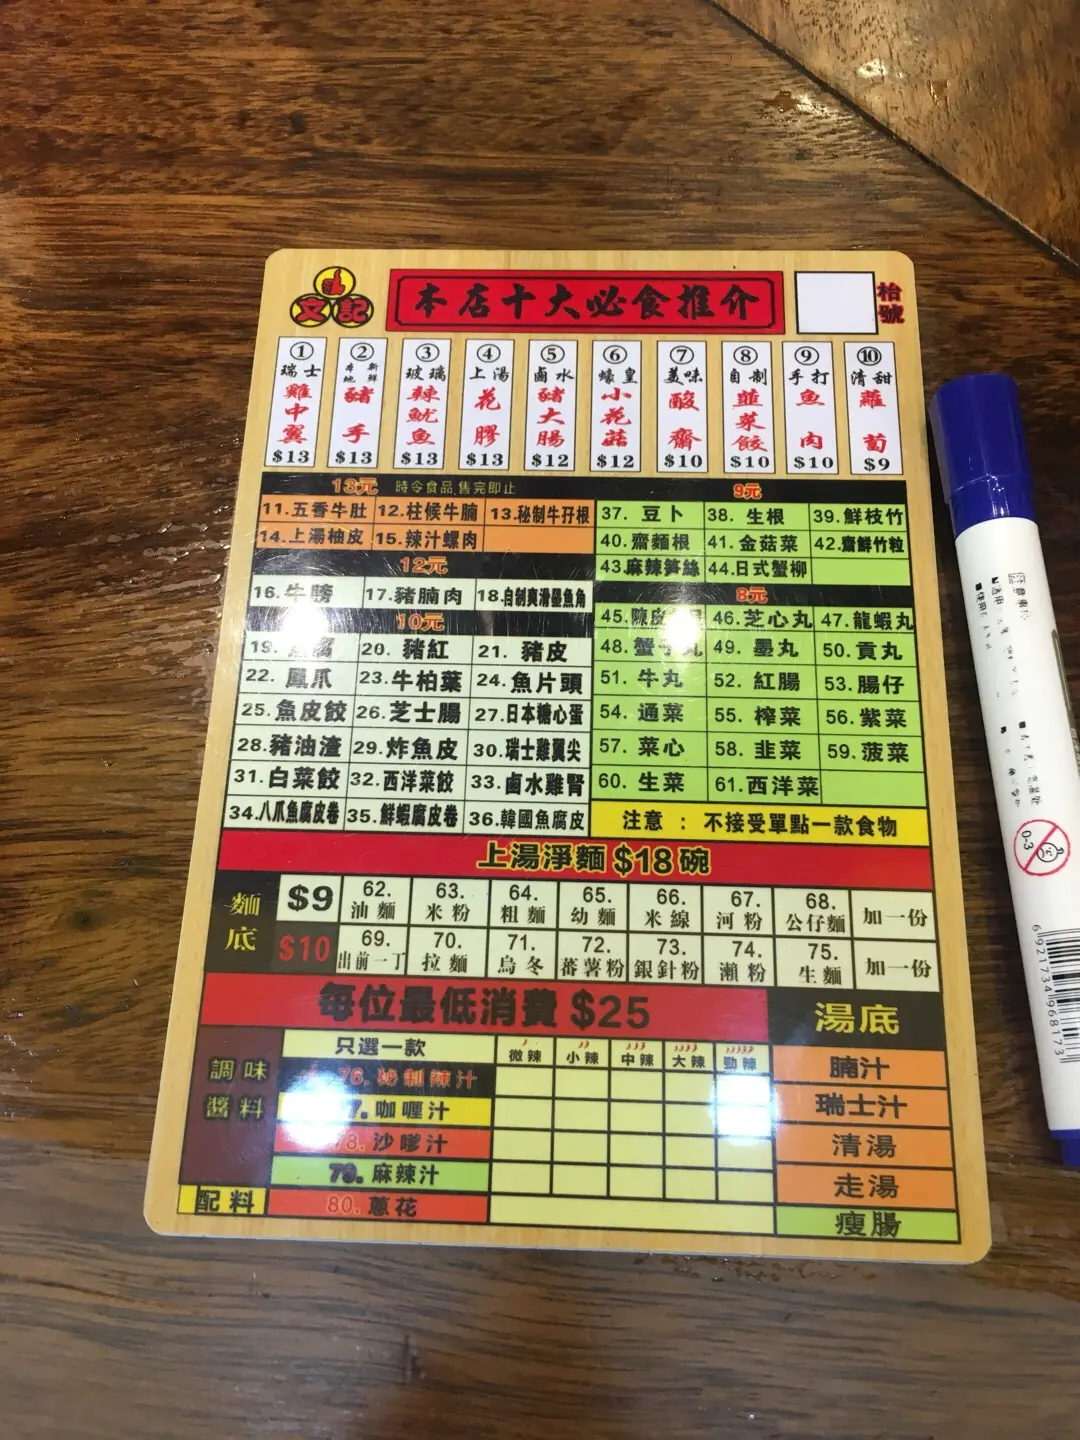 文記
本店十大必食推介
枱號
① 瑞士雞中翼 $13
② 本地新鮮豬手 $13
③ 玻璃辣魷魚 $13
④ 上湯花膠 $13
⑤ 鹵水豬大腸 $12
⑥ 蠔皇小花菇 $12
⑦ 美味酸齋 $10
⑧ 自制韮菜餃 $10
⑨ 手打魚肉 $10
⑩ 清甜蘿蔔 $9
13元 時令食品,售完即止
11.五香牛肚 12.柱候牛腩 13.秘制牛孖根
14.上湯柚皮 15.辣汁螺肉
12元
16.牛膀 17.豬腩肉 18.自制爽滑墨魚角
10元
19. 20.豬紅 21.豬皮
22.鳳爪 23.牛柏葉 24.魚片頭
25.魚皮餃 26.芝士腸 27.日本糖心蛋
28.豬油渣 29.炸魚皮 30.瑞士雞翼尖
31.白菜餃 32.西洋菜餃 33.鹵水雞腎
34.八爪魚腐皮卷 35.鮮蝦腐皮卷 36.韓國魚腐皮
9元
37.豆卜 38.生根 39.鮮枝竹
40.齋麵根 41.金菇菜 42.齋鮮竹粒
43.麻辣笋絲 44.日式蟹柳
8元
45.陳皮 46.芝心丸 47.龍蝦丸
48.蟹 49.墨丸 50.貢丸
51.牛丸 52.紅腸 53.腸仔
54.通菜 55.榨菜 56.紫菜
57.菜心 58.韭菜 59.菠菜
60.生菜 61.西洋菜
注意 : 不接受單點一款食物
上湯淨麵 $18 碗
麵底
$9 62.油麵 63.米粉 64.粗麵 65.幼麵 66.米線 67.河粉 68.公仔麵 加一份
$10 69.出前一丁 70.拉麵 71.烏冬 72.蕃薯粉 73.銀針粉 74.瀨粉 75.生麵 加一份
每位最低消費 $25
湯底
調味醬料
只選一款 微辣 小辣 中辣 大辣 勁辣
76.秘制辣汁
7.咖喱汁
78.沙嗲汁
79.麻辣汁
配料 80.蔥花
腩汁
瑞士汁
清湯
走湯
瘦腸
0-3
6921734968173